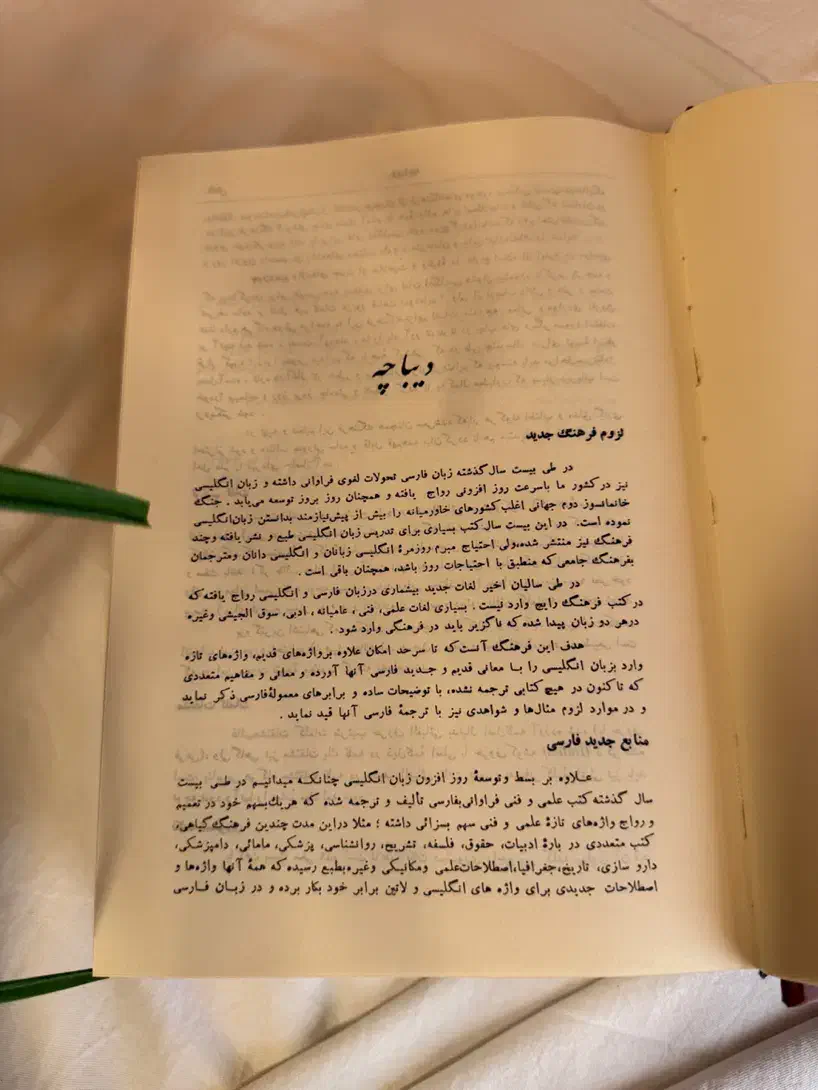 دیباچه
لزوم فرهنگ جدید
در طی بیست سال گذشته زبان فارسی تحولات لغوی فراوانی داشته و زبان انگلیسی
نیز در کشور ما باسرعت روز افزونی رواج یافته و همچنان روز بروز توسعه می‌یابد . جنگ
خانمانسوز دوم جهانی اغلب کشورهای خاورمیانه را بیش از پیش‌نیازمند بدانستن زبان‌انگلیسی
نموده است. در این بیست سال کتب بسیاری برای تدریس زبان انگلیسی طبع و نشر یافته وچند
فرهنگ نیز منتشر شده،ولی احتیاج مبرم روزمرهٔ انگلیسی زبانان و انگلیسی دانان ومترجمان
بفرهنگ جامعی که منطبق با احتیاجات روز باشد، همچنان باقی است .
در طی سالیان اخیر لغات جدید بیشماری درزبان فارسی و انگلیسی رواج یافته که
در کتب فرهنگ رایج وارد نیست . بسیاری لغات علمی، فنی ، عامیانه ، ادبی، سوق الجیشی وغیره
درهر دو زبان پیدا شده که ناگزیر باید در فرهنگی وارد شود .
هدف این فرهنگ آنست که تا سرحد امکان علاوه برواژه‌های قدیم، واژه‌های تازه
وارد بزبان انگلیسی را بـا معانی قدیم و جـدید فارسی آنها آورده و معانی و مفاهیم متعددی
که تاکنون در هیچ کتابی ترجمه نشده، با توضیحات ساده و برابرهای معمولهٔ‌فارسی ذکر نماید
و در موارد لزوم مثال‌ها و شواهدی نیز با ترجمهٔ فارسی آنها قید نماید .
منابع جدید فارسی
عـلاوه بر بسط و توسعهٔ روز افزون زبان انگلیسی چنانکـه میدانیـم در طـی بیست
سال گذشته کتب علمی و فنی فراوانی‌بفارسی تألیف و ترجمه شده که هریك‌بسهم خود در تعمیم
و رواج واژه‌های تازهٔ علمی و فنی سهم بسزائی داشته ؛ مثلا دراین مدت چندین فرهنگ گیاهی،
کتب متعددی در بارهٔ ادبیات، حقوق، فلسفه، تشریح، روانشناسی، پزشکی، مامائی، دامپزشکی،
دارو سازی، تاریخ،جغرافیا،اصطلاحات‌علمی ومکانیکی وغیره‌بطبع رسیده که همهٔ آنها واژه‌ها و
اصطلاحات جدیدی برای واژه های انگلیسی و لاتین برابر خود بکار برده و در زبان فـارسی